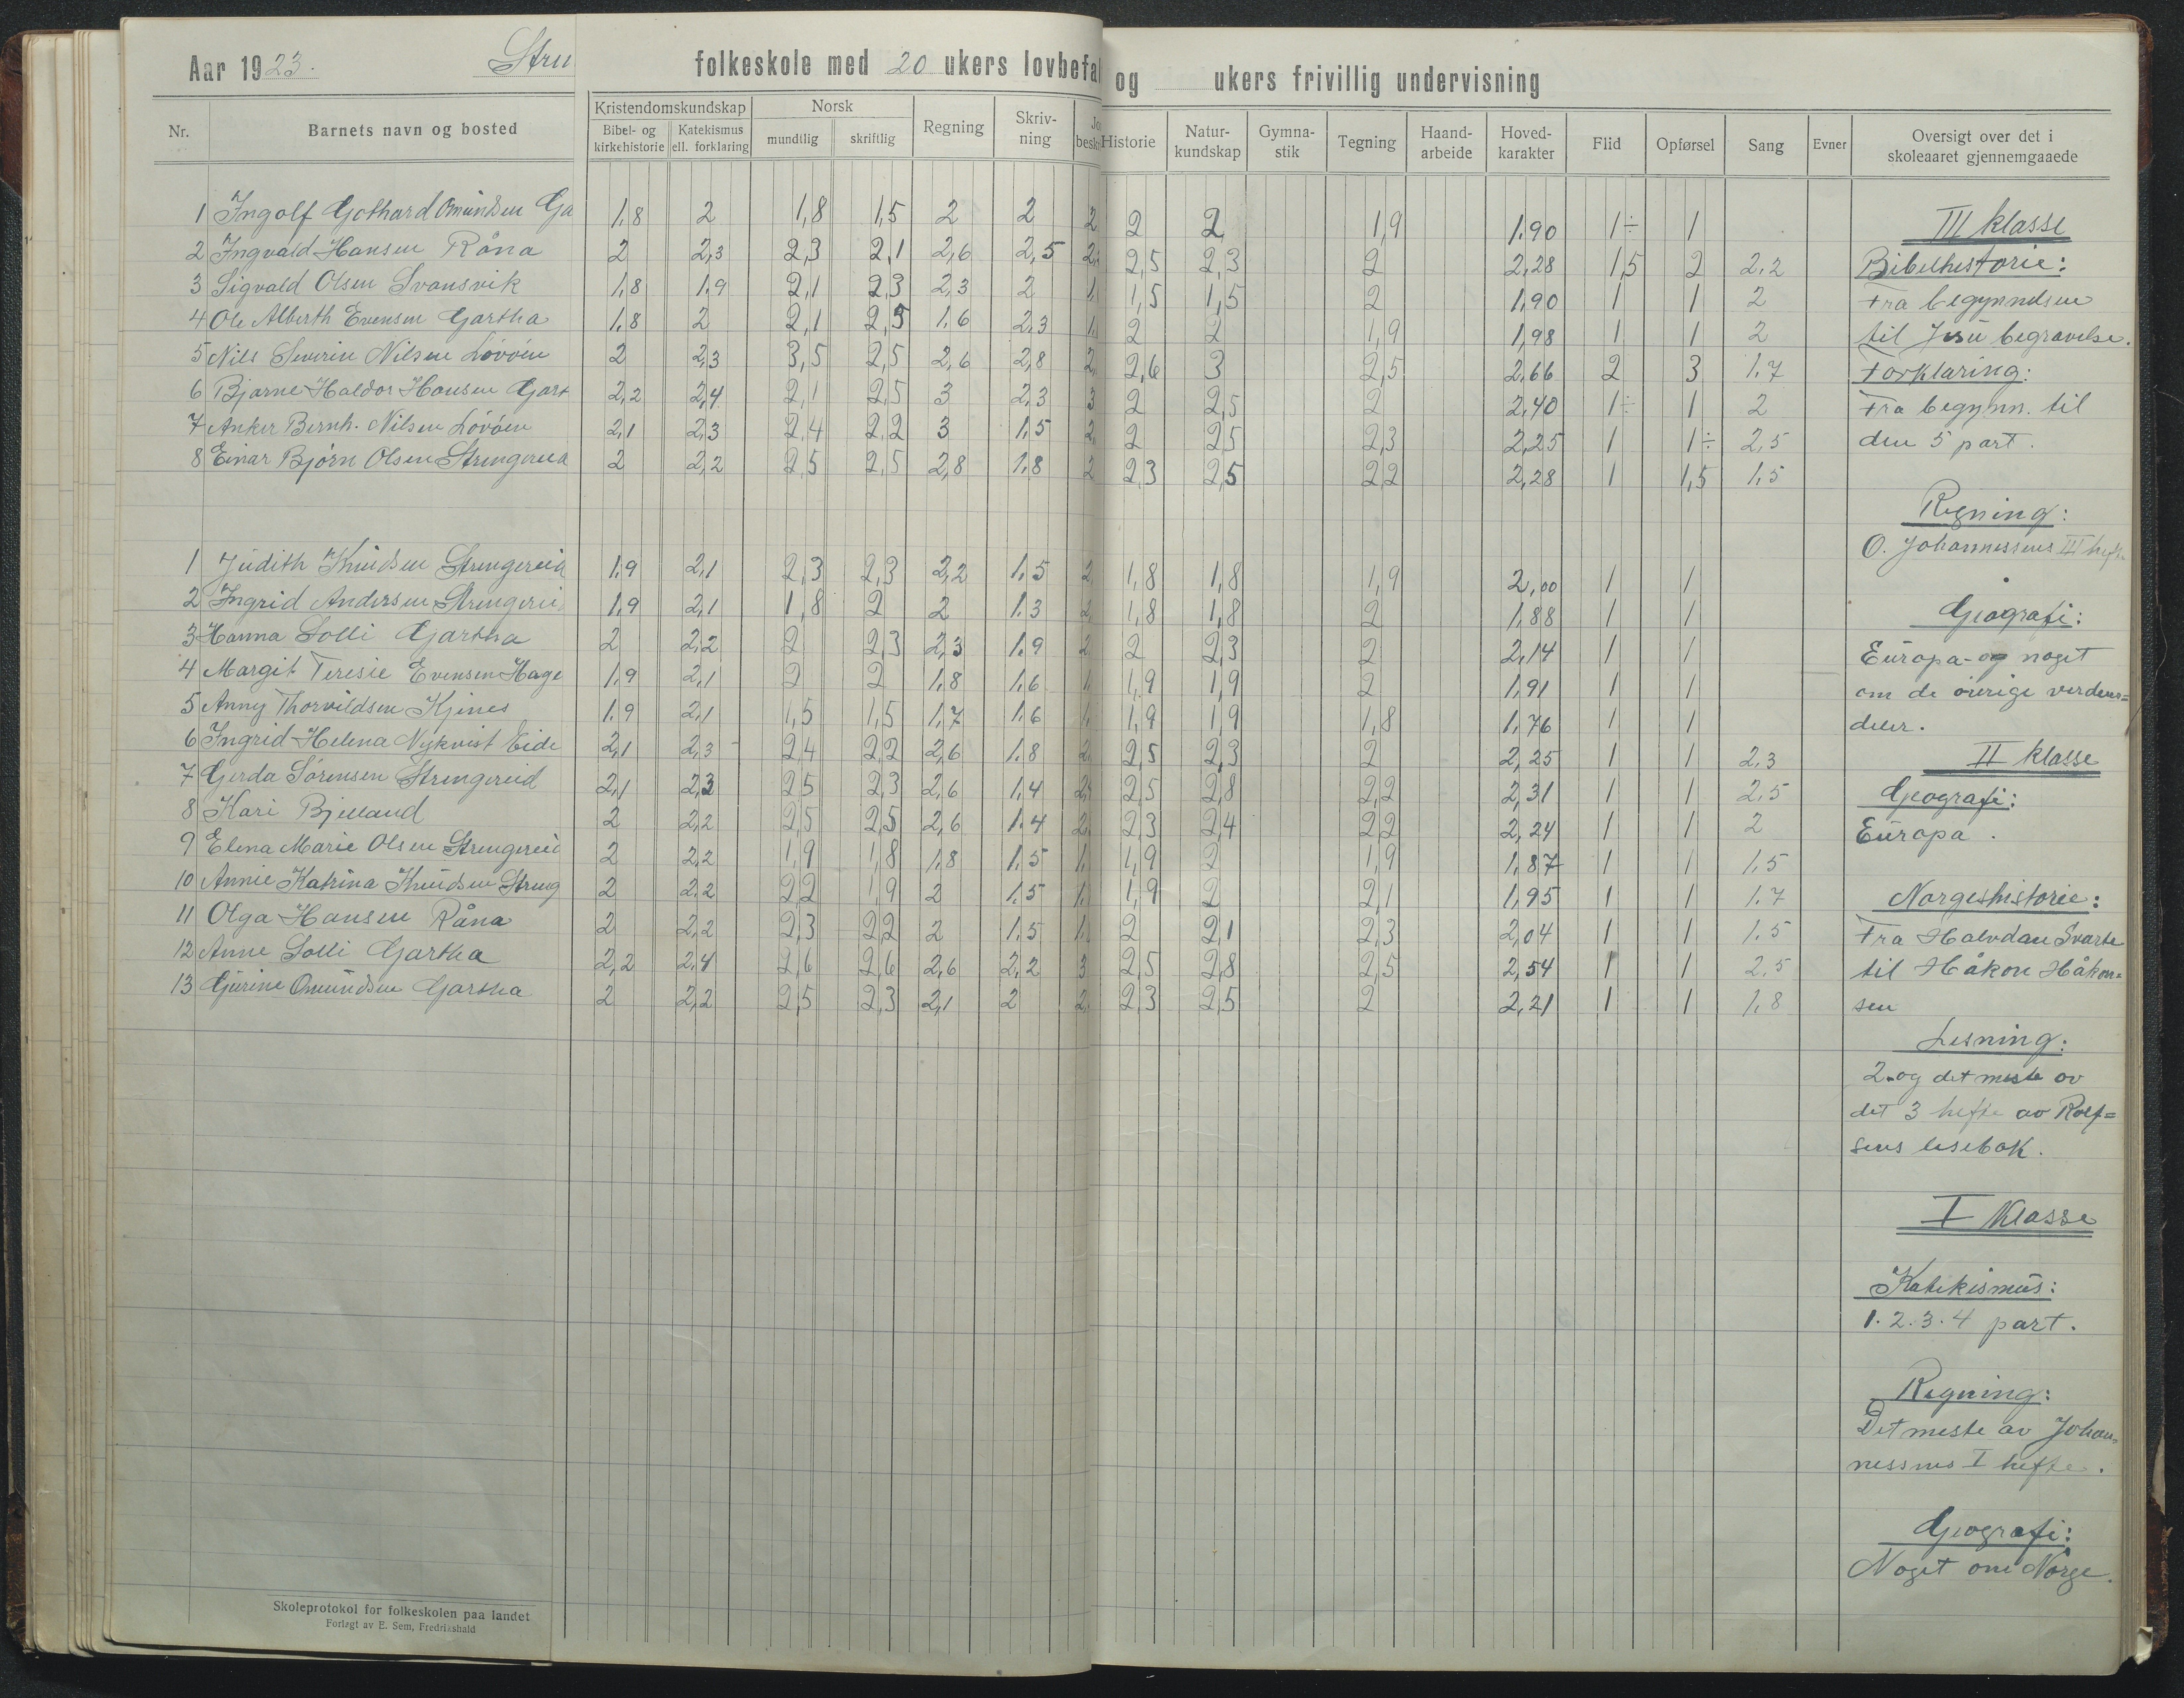 Aar 1923. Stru folkeskole med 20 ukers lovbefal og ukers frivillig undervisning
Nr. Barnets navn og bosted Kristendomskundskap Norsk Regning Skriv-ning Jo besk Historie Natur-kundskap Gymna-stik Tegning Haand-arbeide Hoved-karakter Flid Opførsel Sang Evner Oversigt over det i skoleaaret gjennemgaaede
Bibel- og kirkehistorie Katekismus ell. forklaring mundtlig skriftlig
1 Ingolf Gothard Omundsen Ga 1,8 2 1,8 1,5 2 2 2 2 2 1,9 1.90 1÷ 1
2 Ingvald Hansen Råna 2 2,3 2,3 2,1 2,6 2,5 2, 2,5 2,3 2 2,28 1,5 2 2,2
3 Sigvald Olsen Svansvik 1,8 1,9 2,1 2,3 2,3 2 1, 1,5 1,5 2 1,90 1 1 2
4 Ole Alberth Evensen Gartha 1,8 2 2,1 2,5 1,6 2,3 1, 2 2 1,9 1,98 1 1 2
5 Nils Severin Nilsen Lövöen 2 2,3 3,5 2,5 2,6 2,8 2, 2,6 3 2,5 2,66 2 3 1,7
6 Bjarne Haldor Hansen Gart 2,2 2,4 2,1 2,5 3 2,3 3 2 2,5 2 2,40 1÷ 1 2
7 Anker Bernh. Nilsen Lövöen 2,1 2,3 2,4 2,2 3 1,5 2, 2 2,5 2,3 2,25 1 1÷ 2,5
8 Einar Björn Olsen Strengereid 2 2,2 2,5 2,5 2,8 1,8 2 2,3 2,5 2,2 2,28 1 1,5 1,5
1 Judith Knudsen Strengereid 1,9 2,1 2,3 2,3 2,2 1,5 2, 1,8 1,8 1,9 2,00 1 1
2 Ingrid Andersen Strengerei 1,9 2,1 1,8 2 2 1,3 2, 1,8 1,8 2 1,88 1 1
3 Hanna Solli Gartha 2 2,2 2 2,3 2,3 1,9 2 2 2,3 2 2,14 1 1
4 Margit Teresie Evensen Hage 1,9 2,1 2 2 1,8 1,6 1, 1,9 1,9 2 1,91 1 1
5 Anny Thorvildsen Kjenes 1,9 2,1 1,5 1,5 1,7 1,6 1, 1,9 1,9 1,8 1,76 1 1
6 Ingrid Helena Nykvist Eide 2,1 2,3 2,4 2,2 2,6 1,8 2, 2,5 2,3 2 2,25 1 1 2,3
7 Gerda Sörensen Strengereid 2,1 2,3 2,5 2,3 2,6 1,4 2, 2,5 2,8 2,2 2,31 1 1 2,5
8 Kari Bjelland 2 2,2 2,5 2,5 2,6 1,4 2, 2,3 2,4 2,2 2,24 1 1 2
9 Elena Marie Olsen Strengereid 2 2,2 1,9 1,8 1,8 1,5 1, 1,9 2 1,9 1,87 1 1 1,5
10 Annie Katrina Knudsen Streng 2 2,2 2,2 1,9 2 1,5 1, 1,9 2 2,1 1,95 1 1 1,7
11 Olga Hansen Råna 2 2,2 2,3 2,2 2 1,5 1, 2 2,1 2,3 2,04 1 1 1,5
12 Anne Solli Gartha 2,2 2,4 2,6 2,6 2,6 2,2 3 2,5 2,8 2,5 2,54 1 1 2,5
13 Gurine Omundsen Gartha 2 2,2 2,5 2,3 2,1 2 2, 2,3 2,5 2 2,21 1 1 1,8
III klasse
Bibelhistorie:
Fra begynndsen
til Jesu begravelse.
Forklaring:
Fra begynn. til
den 5 part.
Regning:
O. Johannessens III hefte
Geografi:
Europa og noget
om de øvrige verdens=
deler.
II klasse
Geografi:
Europa.
Norgeshistorie:
Fra Halvdan Svarte
til Håkon Håkon=
sen
Lesning:
2. og det meste av
det 3 hefte av Rolf=
sens lesebok.
I klasse
Katekismus:
1. 2. 3. 4 part.
Regning:
Det meste av Johan=
nessens I hefte.
Geografi:
Noget om Norge.
Skoleprotokol for folkeskolen paa landet
Forlagt av E. Sem, Fredrikshald